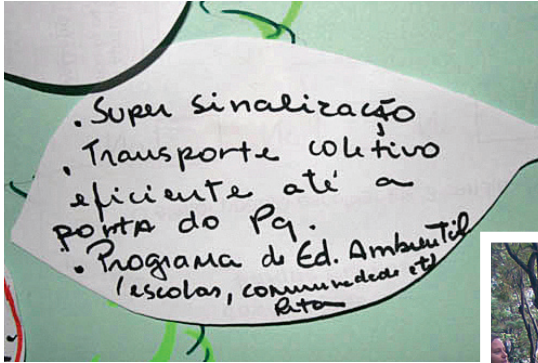 . Super sinalização
. Transporte coletivo
eficiente até a
porta do Pq.
. Programa de Ed. Ambiental
(escolas, comunidade etc)